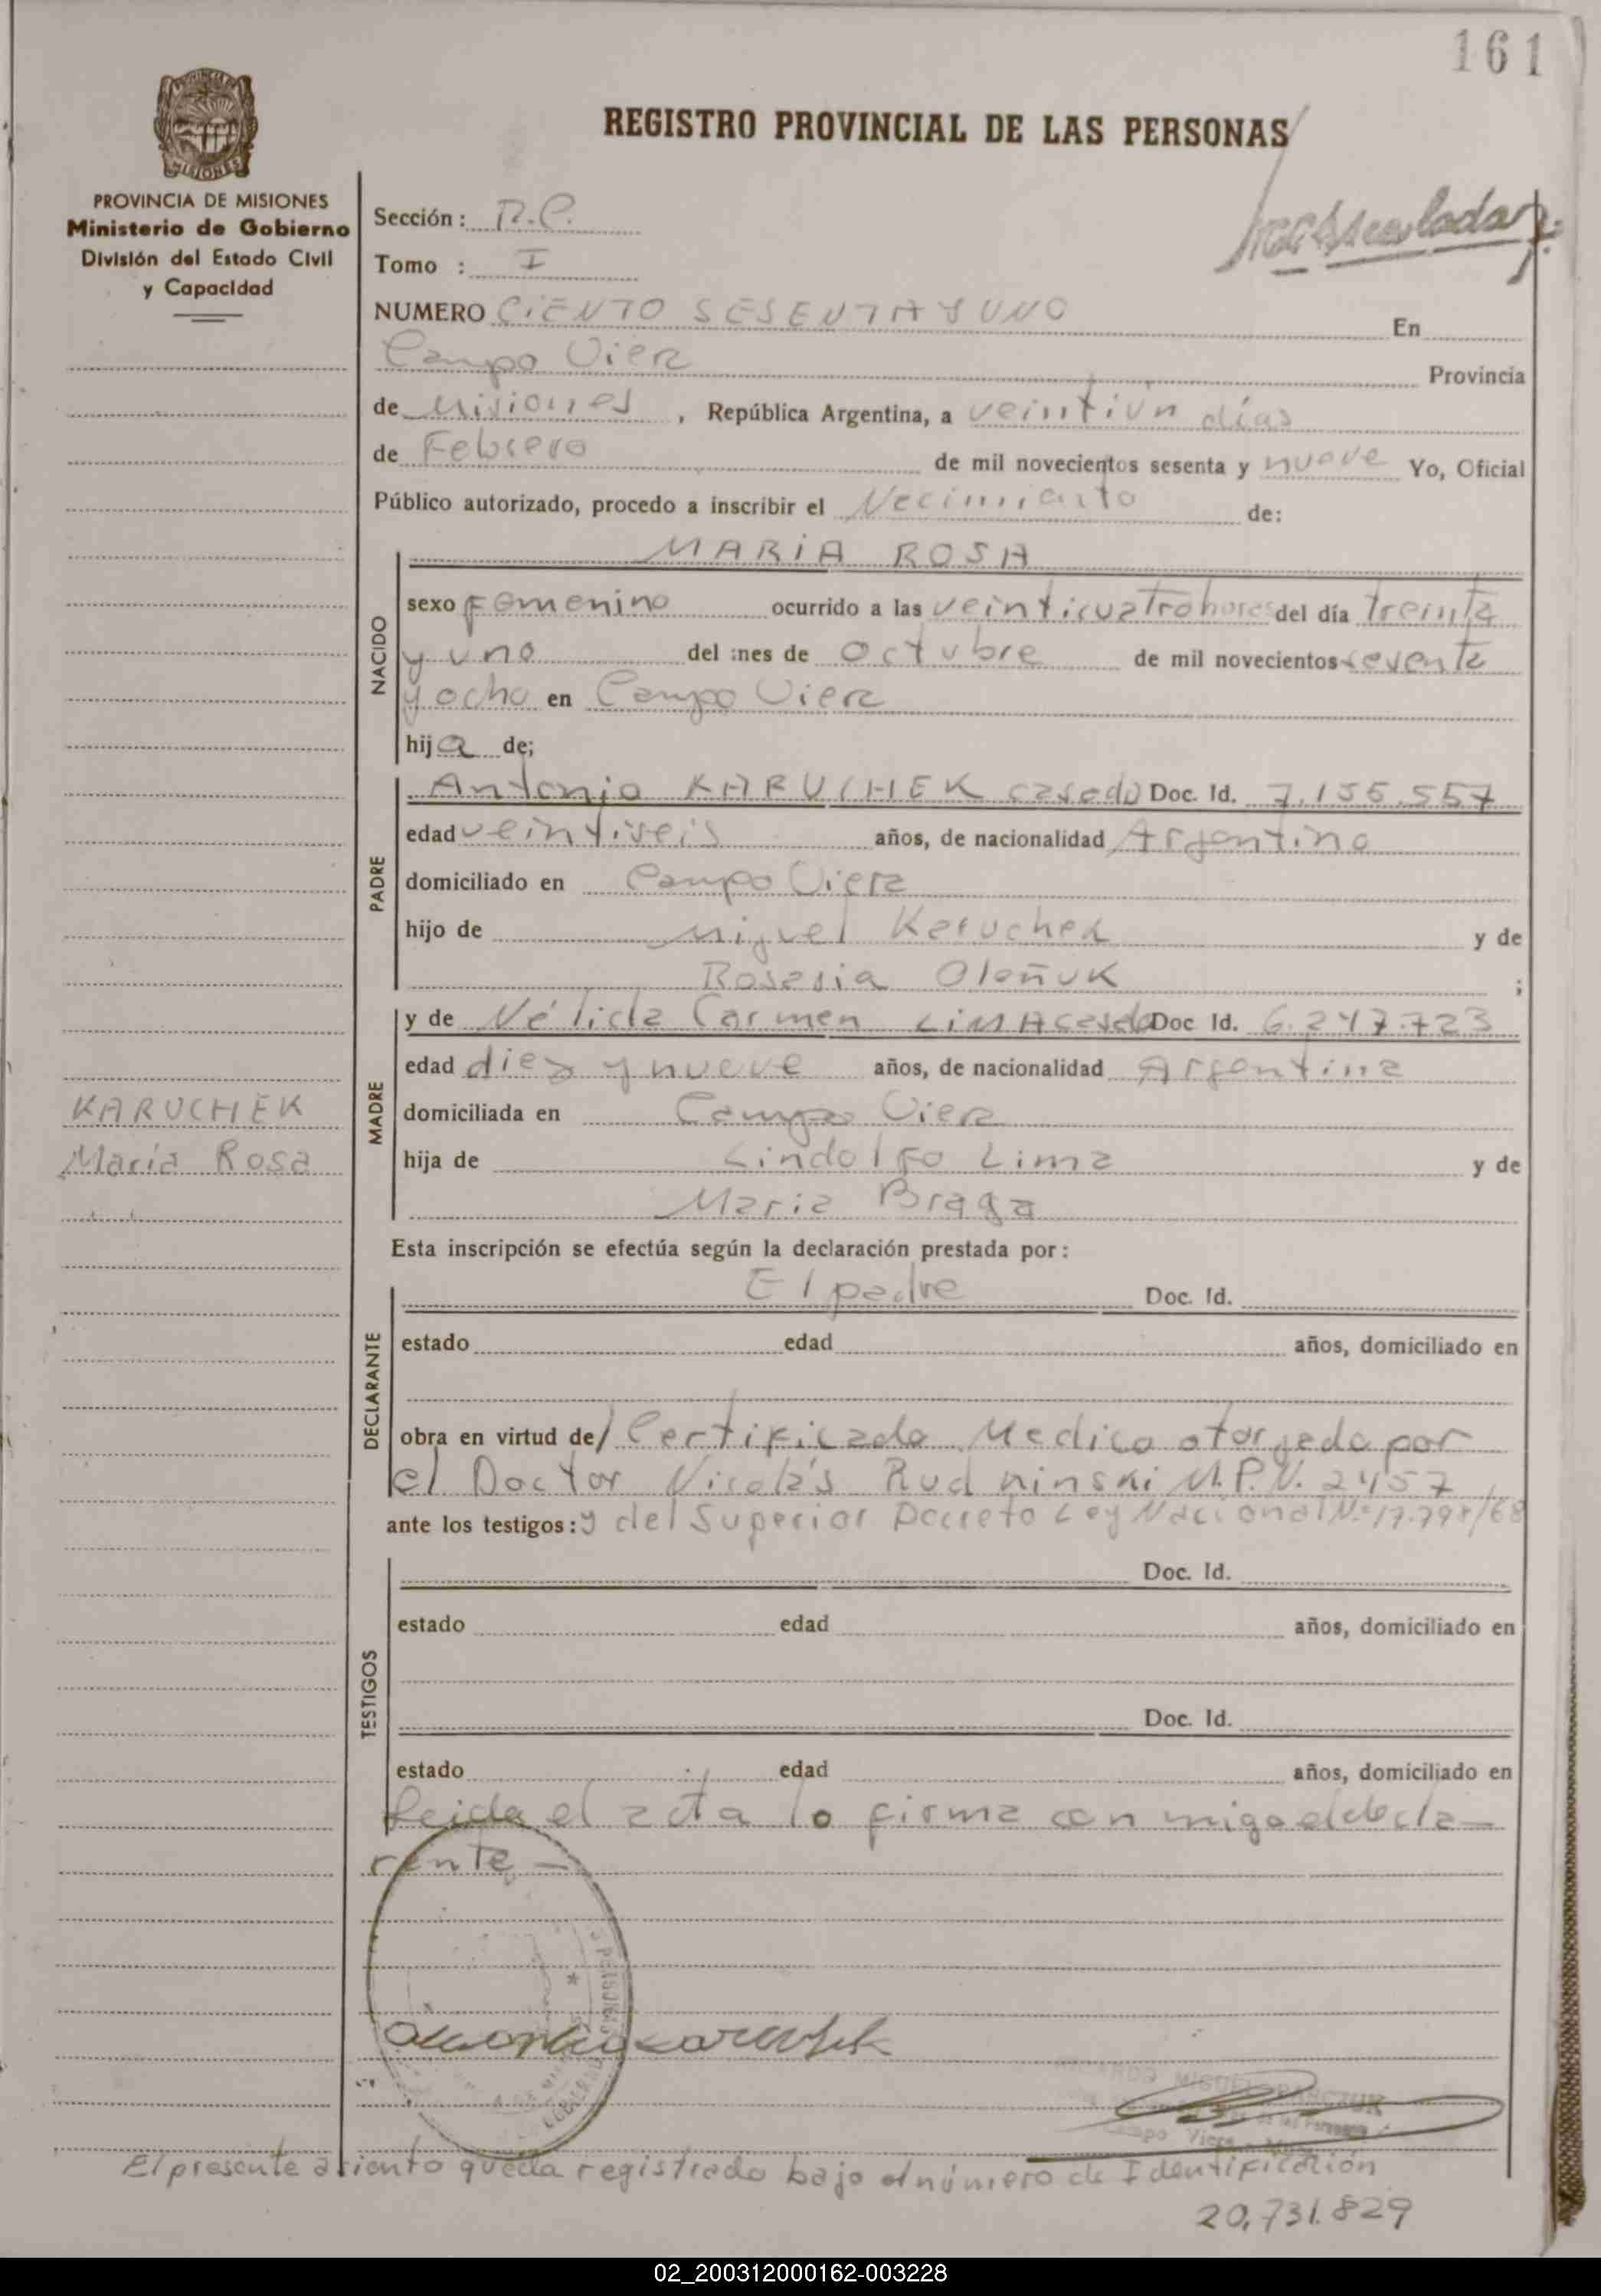 161
REGISTRO PROVINCIAL DE LAS PERSONAS
PROVINCIA DE MISIONES
Ministerio de Gobierno
División del Estado Civil
y Capacidad
Sección:
Tomo : I
NUMERO CIENTO SESENTA Y UNO En
Campo Viera Provincia
de Misiones, República Argentina, a veintiun días
de Febrero de mil novecientos sesenta y nueve Yo, Oficial
Público autorizado, procedo a inscribir el Necimiento de:
NACIDO
MARIA ROSA
sexo Femenino ocurrido a las veinticuatro horas del día treinta
y uno del mes de Octubre de mil novecientos sesenta
y ocho en Campo Viera
hija de;
PADRE
Antonio KARUCHEK casado Doc. Id. 7.155.557
edad veintiseis años, de nacionalidad Argentino
domiciliado en Campo Viera
hijo de Miguel Karuchek y de
Rosasia Oleñuk ;
MADRE
y de Nélida Carmen LIMA casada Doc Id. 6.247.723
edad diez y nueve años, de nacionalidad Argentina
domiciliada en Campo Viera
hija de Lindolfo Lima y de
Maria Braga
KARUCHEK
María Rosa
Esta inscripción se efectúa según la declaración prestada por:
DECLARANTE
El padre Doc. Id.
estado edad años, domiciliado en
obra en virtud de/ Certificado Medico otorgado por
el Doctor Nicolás Rudninski M.P.N. 2457
ante los testigos: y del Superior Decreto Ley Nacional Nº 17.798/68
TESTIGOS
Doc. Id.
estado edad años, domiciliado en
Doc. Id.
estado edad años, domiciliado en
Leida el acta lo firma con migo el decla-
rante-
El presente asiento queda registrado bajo el número de Identificación
20.731.829
02_200312000162-003228